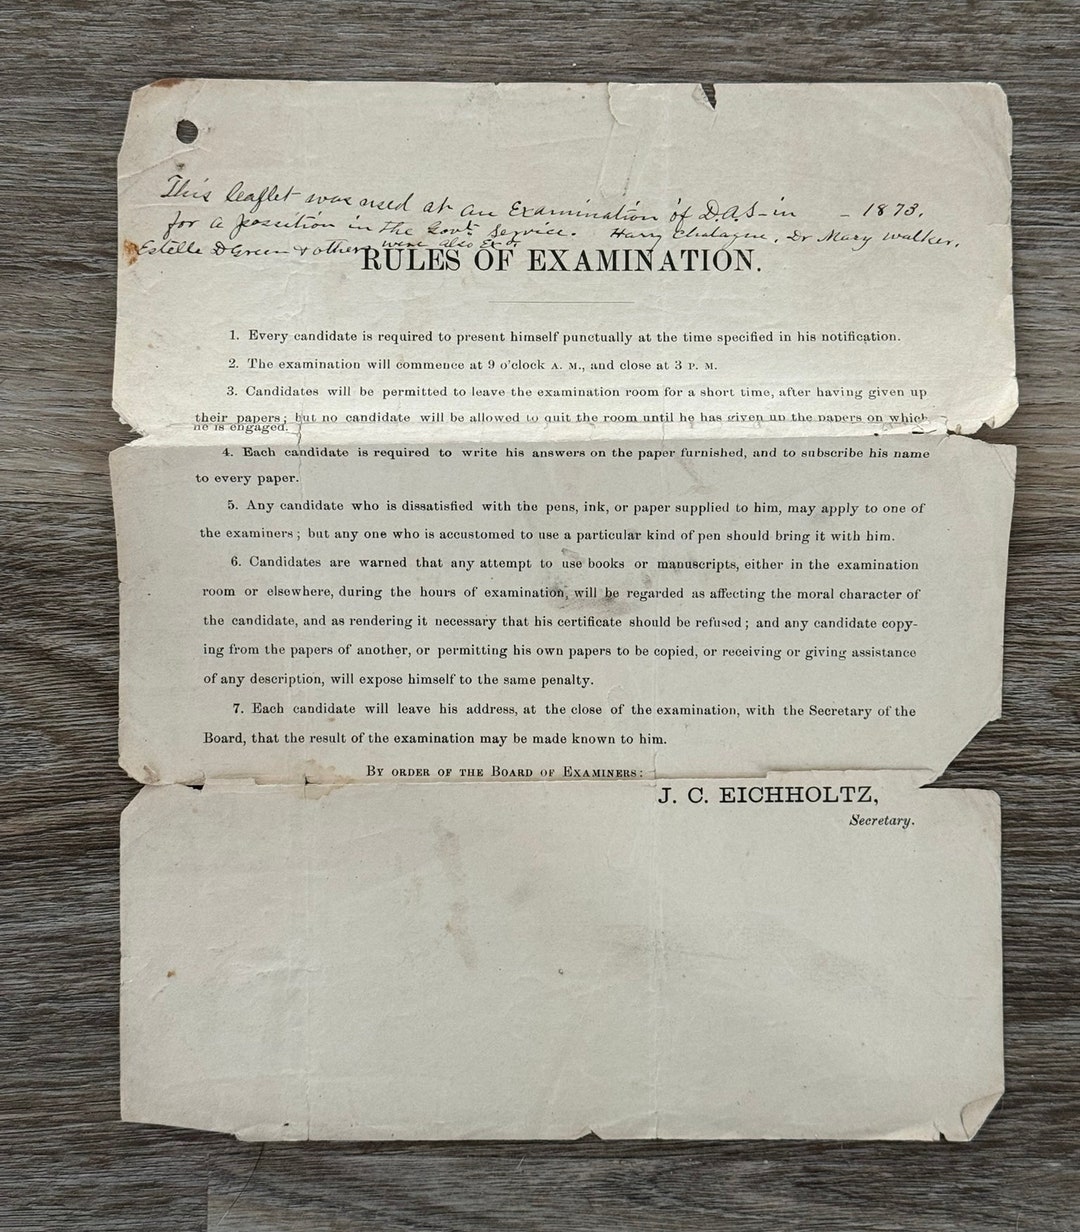 This leaflet was used at an Examination of D.A.S- in - 1873.
for a position in the Govt. Service. Harry , Dr Mary Walker,
Estelle D Green & others were also Exd.
RULES OF EXAMINATION.
1. Every candidate is required to present himself punctually at the time specified in his notification.
2. The examination will commence at 9 o'clock A. M., and close at 3 P. M.
3. Candidates will be permitted to leave the examination room for a short time, after having given up
their papers; but no candidate will be allowed to quit the room until he has given up the papers on which
he is engaged.
4. Each candidate is required to write his answers on the paper furnished, and to subscribe his name
to every paper.
5. Any candidate who is dissatisfied with the pens, ink, or paper supplied to him, may apply to one of
the examiners; but any one who is accustomed to use a particular kind of pen should bring it with him.
6. Candidates are warned that any attempt to use books or manuscripts, either in the examination
room or elsewhere, during the hours of examination, will be regarded as affecting the moral character of
the candidate, and as rendering it necessary that his certificate should be refused; and any candidate copy-
ing from the papers of another, or permitting his own papers to be copied, or receiving or giving assistance
of any description, will expose himself to the same penalty.
7. Each candidate will leave his address, at the close of the examination, with the Secretary of the
Board, that the result of the examination may be made known to him.
BY ORDER OF THE BOARD OF EXAMINERS:
J. C. EICHHOLTZ,
Secretary.